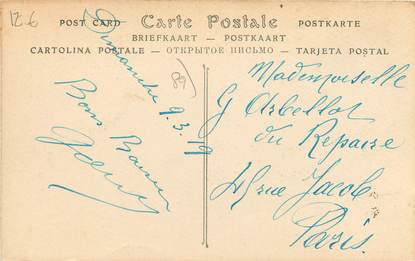 126
POST CARD Carte Postale POSTKARTE
BRIEFKAART — POSTKAART
CARTOLINA POSTALE — ОТКРЫТОЕ ПИСЬМО — TARJETA POSTAL
Dimanche 9.3.19
Bons Baisers
Mademoiselle
G Arbellot
du Repaire
rue Jacob
Paris